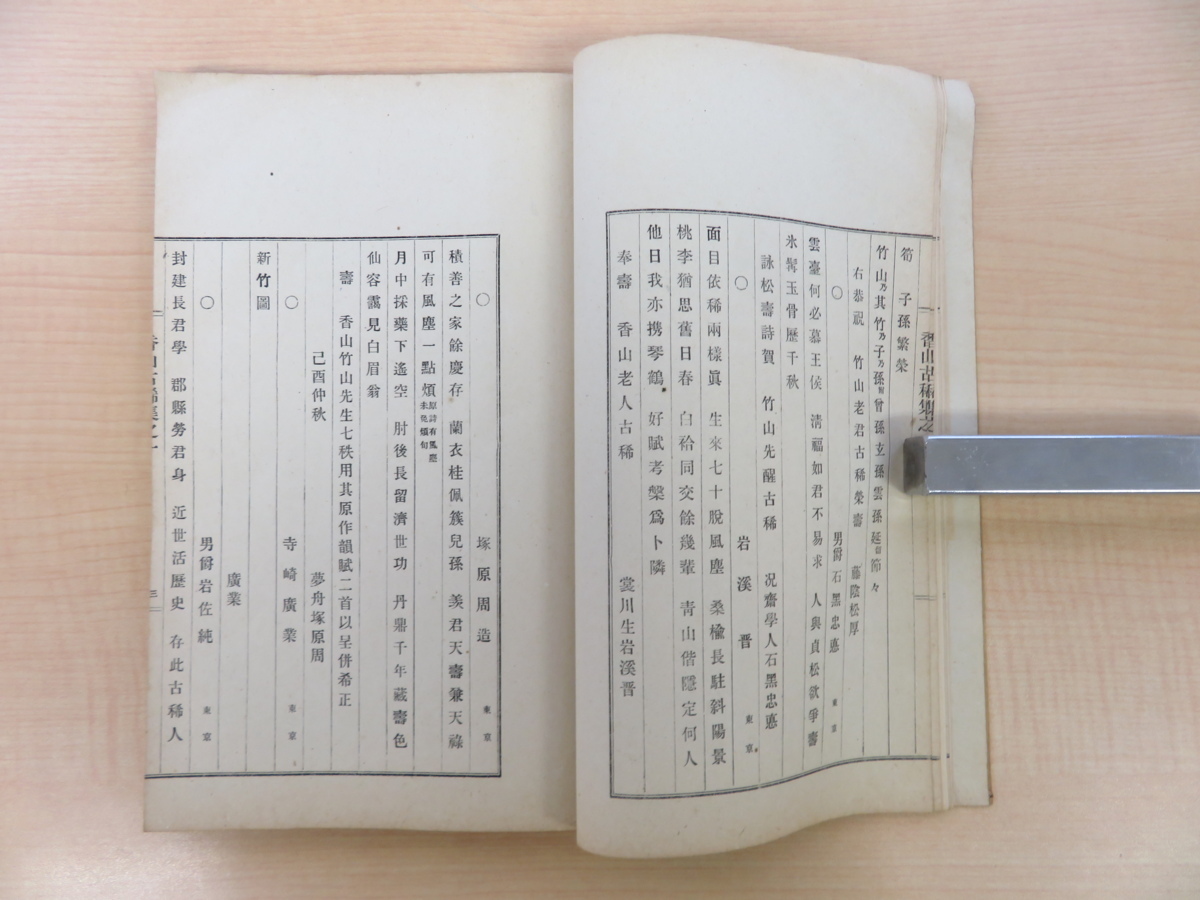 香山古稀集之
筍　子孫繁榮
竹山乃其竹乃子乃孫曾孫玄孫雲孫延節々
右恭祝　竹山老君古稀榮壽　藤陰松厚
〇　男爵石黑忠悳　東京
雲臺何必慕王侯　淸福如君不易求　人與貞松欲爭壽
氷髯玉骨歷千秋
詠松壽詩賀　竹山先醒古稀　况齋學人石黑忠悳
〇　岩溪晋　東京
面目依稀兩樣眞　生來七十脫風塵　桑楡長駐斜陽景
桃李猶思舊日春　白袷同交餘幾輩　靑山偕隱定何人
他日我亦携琴鶴　好賦考槃爲卜隣
奉壽　香山老人古稀　裳川生岩溪晋
〇　塚原周造　東京
積善之家餘慶存　蘭衣桂佩簇兒孫　羨君天壽兼天祿
可有風塵一點煩原詩有風塵未免煩句
月中採藥下遙空　肘後長留濟世功　丹鼎千年藏壽色
仙容靄見白眉翁
壽　香山竹山先生七秩用其原作韻賦二首以呈併希正
己酉仲秋　夢舟塚原周
〇　寺崎廣業　東京
新竹圖
廣業
〇　男爵岩佐純　東京
封建長君學　郡縣勞君身　近世活歷史　存此古稀人
香山古稀集之一　三